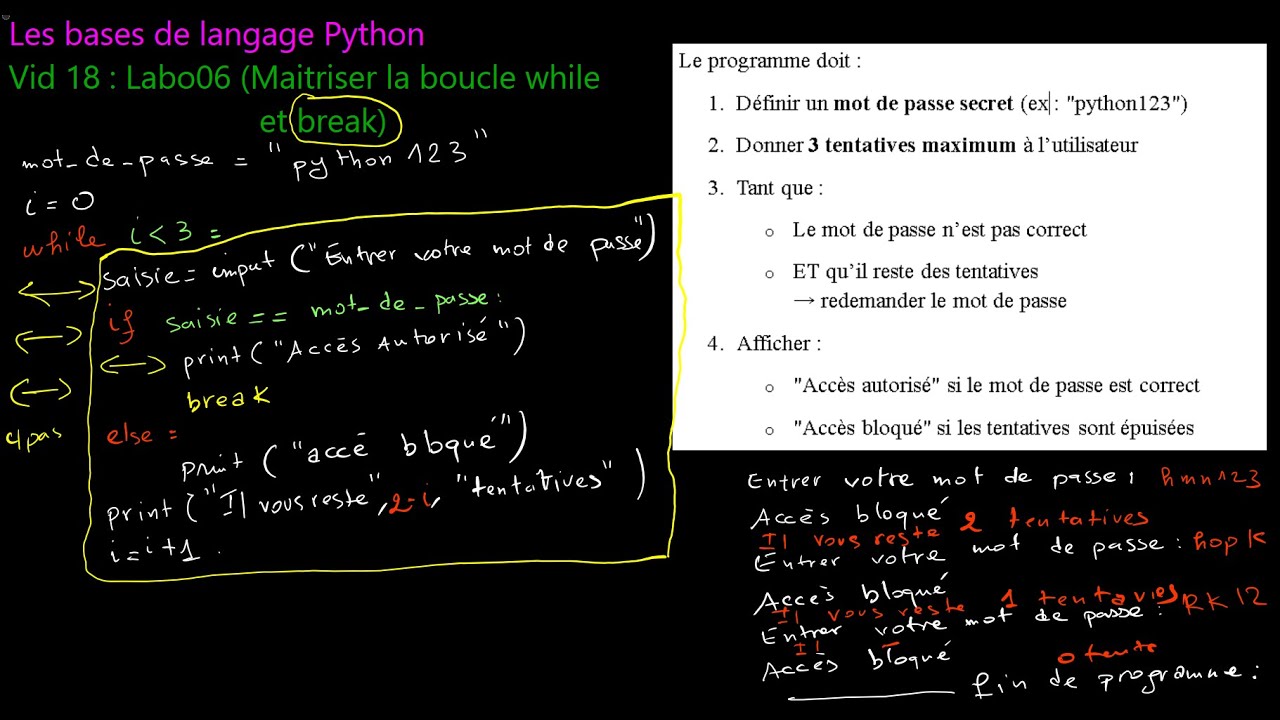 Les bases de langage Python
Vid 18 : Labo06 (Maitriser la boucle while
et break)
mot_de_passe = "python123"
i = 0
while i < 3 :
saisie = input ("Entrer votre mot de passe")
if saisie == mot_de_passe :
print ("Accès Autorisé")
break
4 pas
else :
print ("accé bloqué")
print ("Il vous reste", 2-i, "tentatives")
i = i + 1
Le programme doit :
1. Définir un mot de passe secret (ex : "python123")
2. Donner 3 tentatives maximum à l’utilisateur
3. Tant que :
o Le mot de passe n’est pas correct
o ET qu’il reste des tentatives
→ redemander le mot de passe
4. Afficher :
o "Accès autorisé" si le mot de passe est correct
o "Accès bloqué" si les tentatives sont épuisées
Entrer votre mot de passe : hmn123
Accès bloqué
Il vous reste 2 tentatives
Entrer votre mot de passe : hopk
Accès bloqué
Il vous reste 1 tentavies
Entrer votre mot de passe : RK12
Il 0 tents
Accès bloqué
fin de programme :